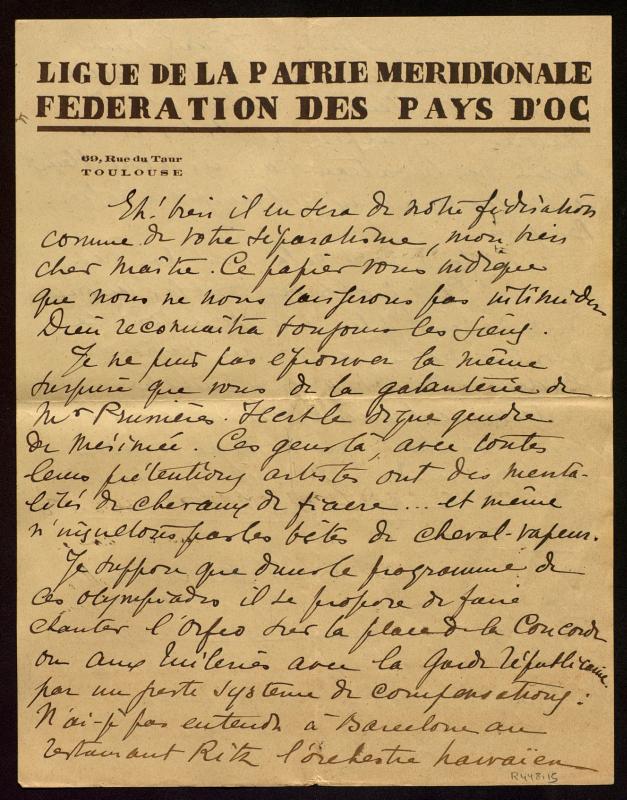 LIGUE DE LA PATRIE MERIDIONALE
FEDERATION DES PAYS D'OC
69, Rue du Taur
TOULOUSE
Eh! bien il en sera de notre fédération
comme de votre séparatisme, mon bien
cher maître. Ce papier vous indique
que nous ne nous laisserons pas intimider
Dieu reconnaîtra toujours les siens.
Je ne puis pas éprouver la même
surprise que vous de la galanterie de
Mr Prunières. Il est le digne gendre
de Mérimée. Ces gens là, avec toutes
leurs prétentions artistes ont des menta-
lités de chevaux de fiacre... et même
n'insultons pas les bêtes de cheval-vapeur.
Je suppose que dans le programme de
ces olympiades il se propose de faire
chanter l'Orfeo sur la place de la Concorde
ou aux Tuileries avec la Garde républicaine.
par un juste système de compensations:
N'ai-je pas entendu à Barcelone au
restaurant Ritz l'orchestre hawaïen
R448.15